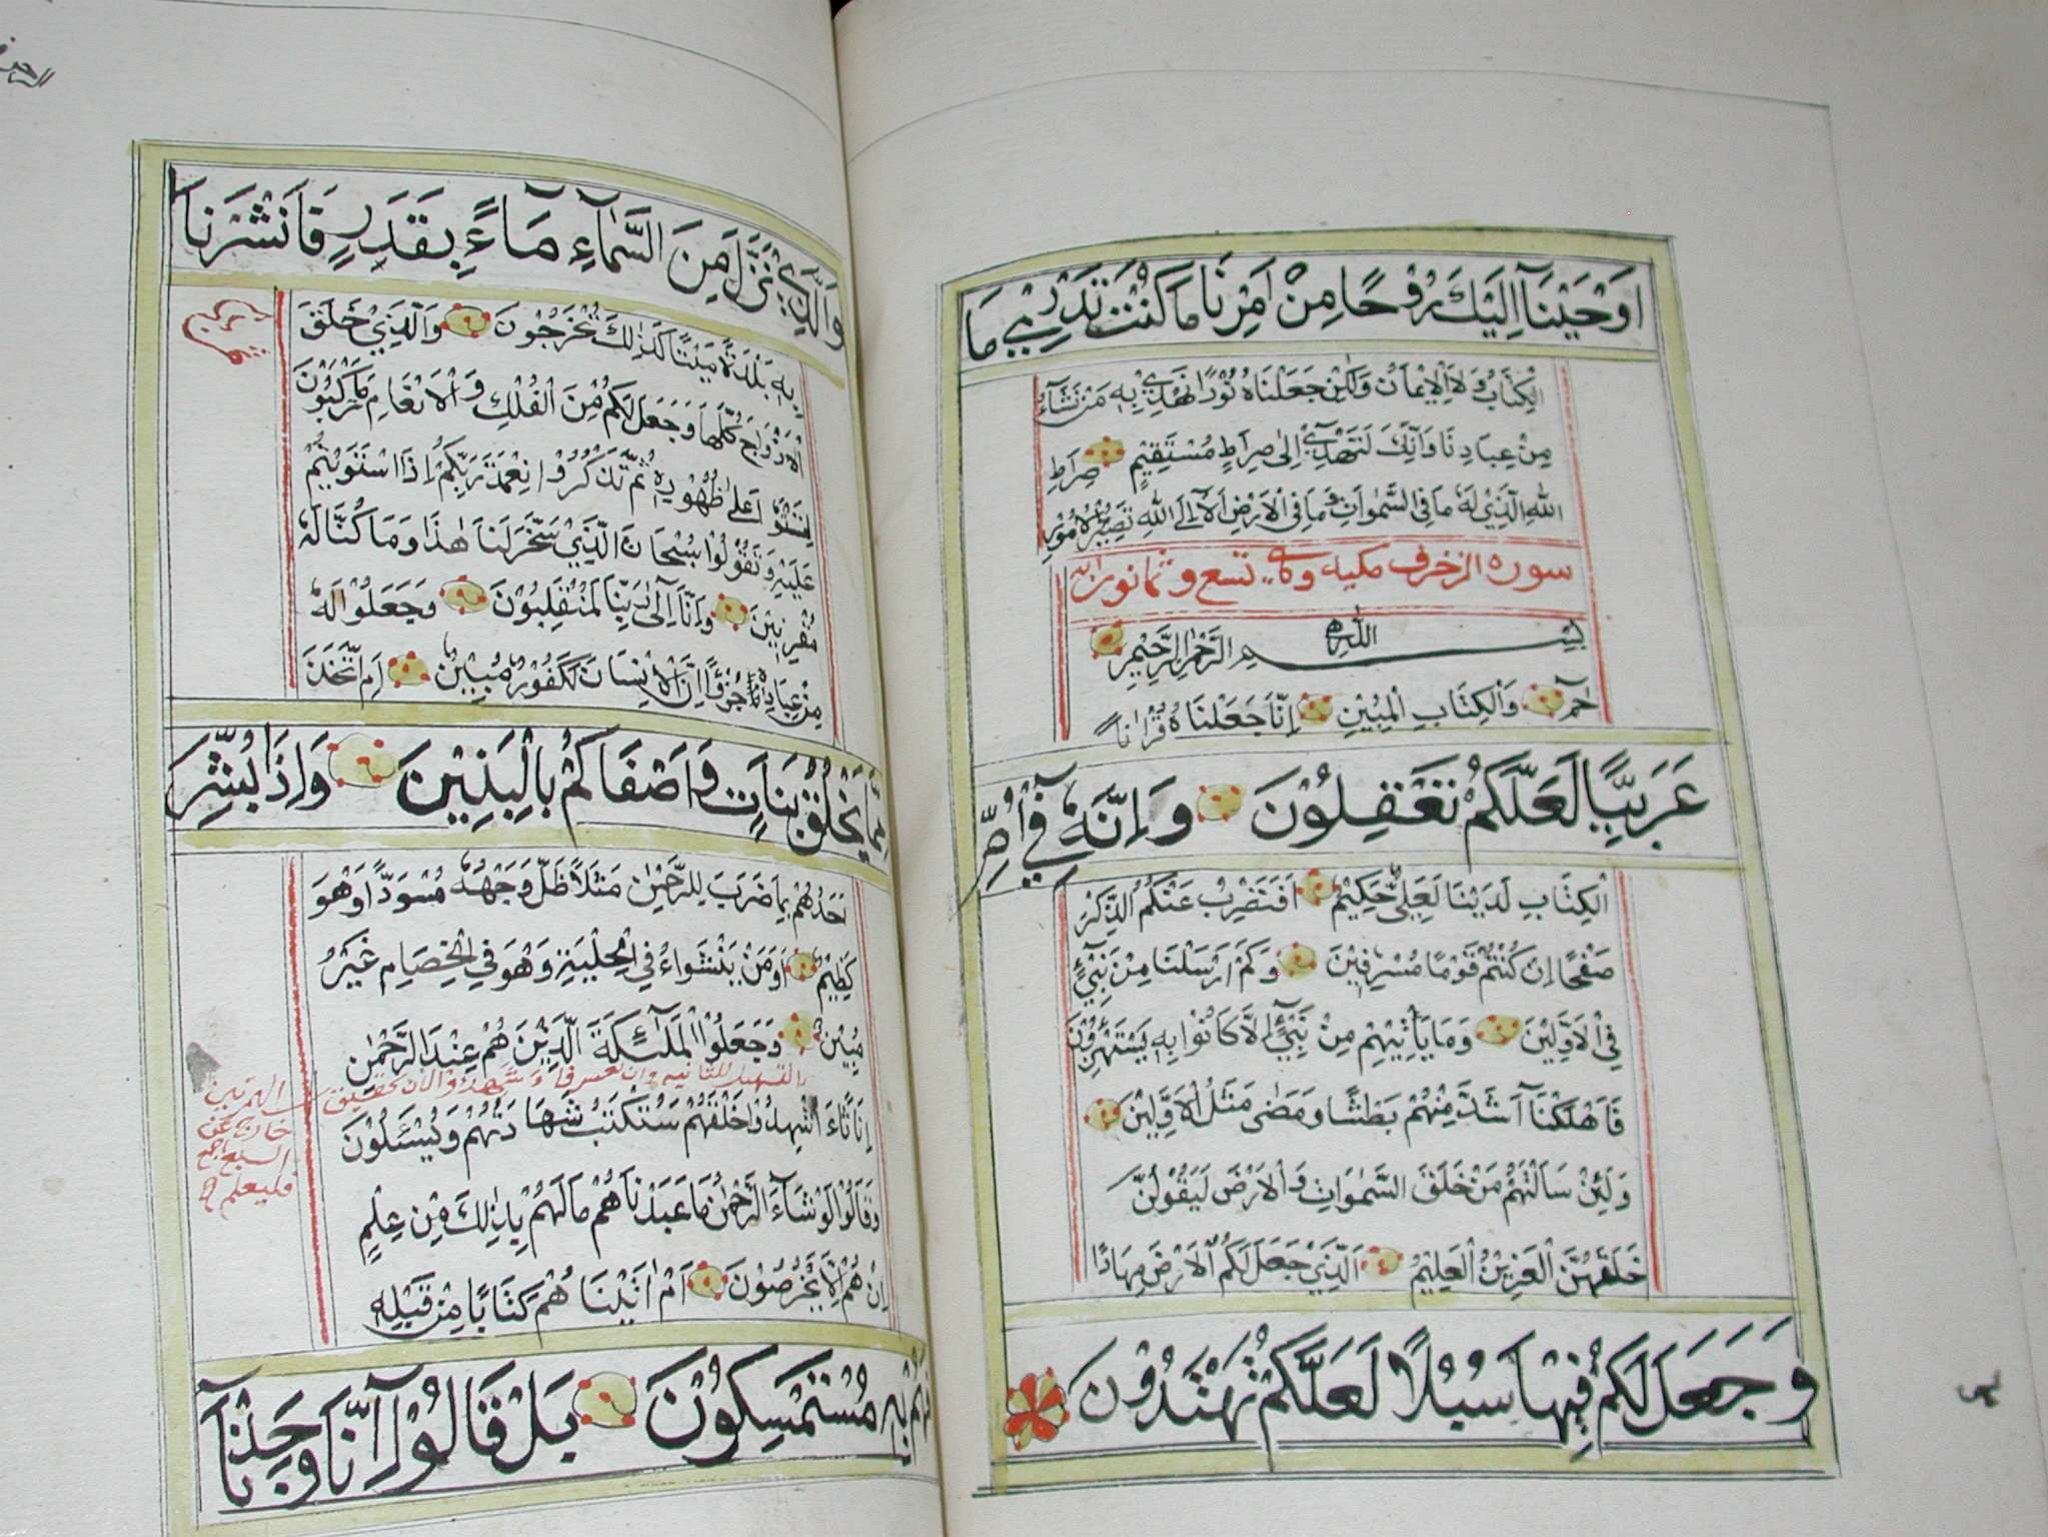 اَوْحَيْنَآ اِلَيْكَ رُوْحًا مِنْ اَمْرِنَا مَا كُنْتَ تَدْرِيْ مَا
الْكِتَابُ وَلَا الْاِيْمَانُ وَلَكِنْ جَعَلْنَاهُ نُوْرًا نَهْدِيْ بِهٖ مَنْ نَشَآءُ
مِنْ عِبَادِنَا وَاِنَّكَ لَتَهْدِيْ اِلٰى صِرَاطٍ مُسْتَقِيْمٍ صِرَاطِ
اللهِ الَّذِيْ لَهٗ مَا فِى السَّمٰوَاتِ وَمَا فِى الْاَرْضِ اَلَآ اِلَى اللهِ تَصِيْرُ الْاُمُوْرُ
سورة الزخرف مكية وهي تسع وثمانون اية
بِسْمِ اللهِ الرَّحْمٰنِ الرَّحِيْمِ
حٰمٓ وَالْكِتَابِ الْمُبِيْنِ اِنَّا جَعَلْنَاهُ قُرْاٰنًا
عَرَبِيًّا لَعَلَّكُمْ تَعْقِلُوْنَ وَاِنَّهٗ فِيْٓ اُمِّ
الْكِتَابِ لَدَيْنَا لَعَلِيٌّ حَكِيْمٌ اَفَنَضْرِبُ عَنْكُمُ الذِّكْرَ
صَفْحًا اِنْ كُنْتُمْ قَوْمًا مُسْرِفِيْنَ وَكَمْ اَرْسَلْنَا مِنْ نَبِيٍّ
فِى الْاَوَّلِيْنَ وَمَا يَاْتِيْهِمْ مِنْ نَبِيٍّ اِلَّا كَانُوْا بِهٖ يَسْتَهْزِؤُنَ
فَاَهْلَكْنَآ اَشَدَّ مِنْهُمْ بَطْشًا وَمَضٰى مَثَلُ الْاَوَّلِيْنَ
وَلَئِنْ سَاَلْتَهُمْ مَنْ خَلَقَ السَّمٰوَاتِ وَالْاَرْضَ لَيَقُوْلُنَّ
خَلَقَهُنَّ الْعَزِيْزُ الْعَلِيْمُ اَلَّذِيْ جَعَلَ لَكُمُ الْاَرْضَ مِهَادًا
وَجَعَلَ لَكُمْ فِيْهَا سُبُلًا لَعَلَّكُمْ تَهْتَدُوْنَ
وَالَّذِيْ نَزَّلَ مِنَ السَّمَآءِ مَآءً بِقَدَرٍ فَاَنْشَرْنَا
بِهٖ بَلْدَةً مَيْتًا كَذٰلِكَ تُخْرَجُوْنَ وَالَّذِيْ خَلَقَ
الْاَزْوَاجَ كُلَّهَا وَجَعَلَ لَكُمْ مِنَ الْفُلْكِ وَالْاَنْعَامِ مَا تَرْكَبُوْنَ
لِتَسْتَوٗا عَلٰى ظُهُوْرِهٖ ثُمَّ تَذْكُرُوْا نِعْمَةَ رَبِّكُمْ اِذَا اسْتَوَيْتُمْ
عَلَيْهِ وَتَقُوْلُوْا سُبْحَانَ الَّذِيْ سَخَّرَ لَنَا هٰذَا وَمَا كُنَّا لَهٗ
مُقْرِنِيْنَ وَاِنَّآ اِلٰى رَبِّنَا لَمُنْقَلِبُوْنَ وَجَعَلُوْا لَهٗ
مِنْ عِبَادِهٖ جُزْءًا اِنَّ الْاِنْسَانَ لَكَفُوْرٌ مُبِيْنٌ اَمِ اتَّخَذَ
مِمَّا يَخْلُقُ بَنَاتٍ وَاَصْفَاكُمْ بِالْبَنِيْنَ وَاِذَا بُشِّرَ
اَحَدُهُمْ بِمَا ضَرَبَ لِلرَّحْمٰنِ مَثَلًا ظَلَّ وَجْهُهٗ مُسْوَدًّا وَهُوَ
كَظِيْمٌ اَوَمَنْ يَنْشَؤُا فِى الْحِلْيَةِ وَهُوَ فِى الْخِصَامِ غَيْرُ
مُبِيْنٍ وَجَعَلُوا الْمَلٰٓئِكَةَ الَّذِيْنَ هُمْ عِنْدَ الرَّحْمٰنِ
اِنَاثًا ءَاُشْهِدُوْا خَلْقَهُمْ سَتُكْتَبُ شَهَادَتُهُمْ وَيُسْئَلُوْنَ
وَقَالُوْا لَوْ شَآءَ الرَّحْمٰنُ مَا عَبَدْنَاهُمْ مَا لَهُمْ بِذٰلِكَ مِنْ عِلْمٍ
اِنْ هُمْ اِلَّا يَخْرُصُوْنَ اَمْ اٰتَيْنَاهُمْ كِتَابًا مِنْ قَبْلِهٖ
فَهُمْ بِهٖ مُسْتَمْسِكُوْنَ بَلْ قَالُوْٓا اِنَّا وَجَدْنَآ
الهمزتين
خارج عن
السبع
فليعلم